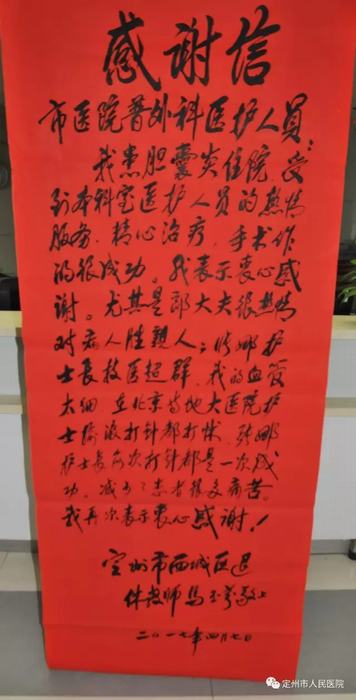 感谢信
市医院普外科医护人员：
我患胆囊炎住院，受
到本科室医护人员的热情
服务，精心治疗，手术作
的很成功。我表示衷心感
谢。尤其是郭大夫很热情
对病人胜亲人；张娜护
士长技医超群，我的血管
太细，在北京等地大医院护
士输液打针都打怵，张娜
护士长每次打针都是一次成
功。减少了患者很多痛苦。
我再次表示衷心感谢！
定州市西城区退
休教师马玉敬上
二〇一七年四月七日
定州市人民医院